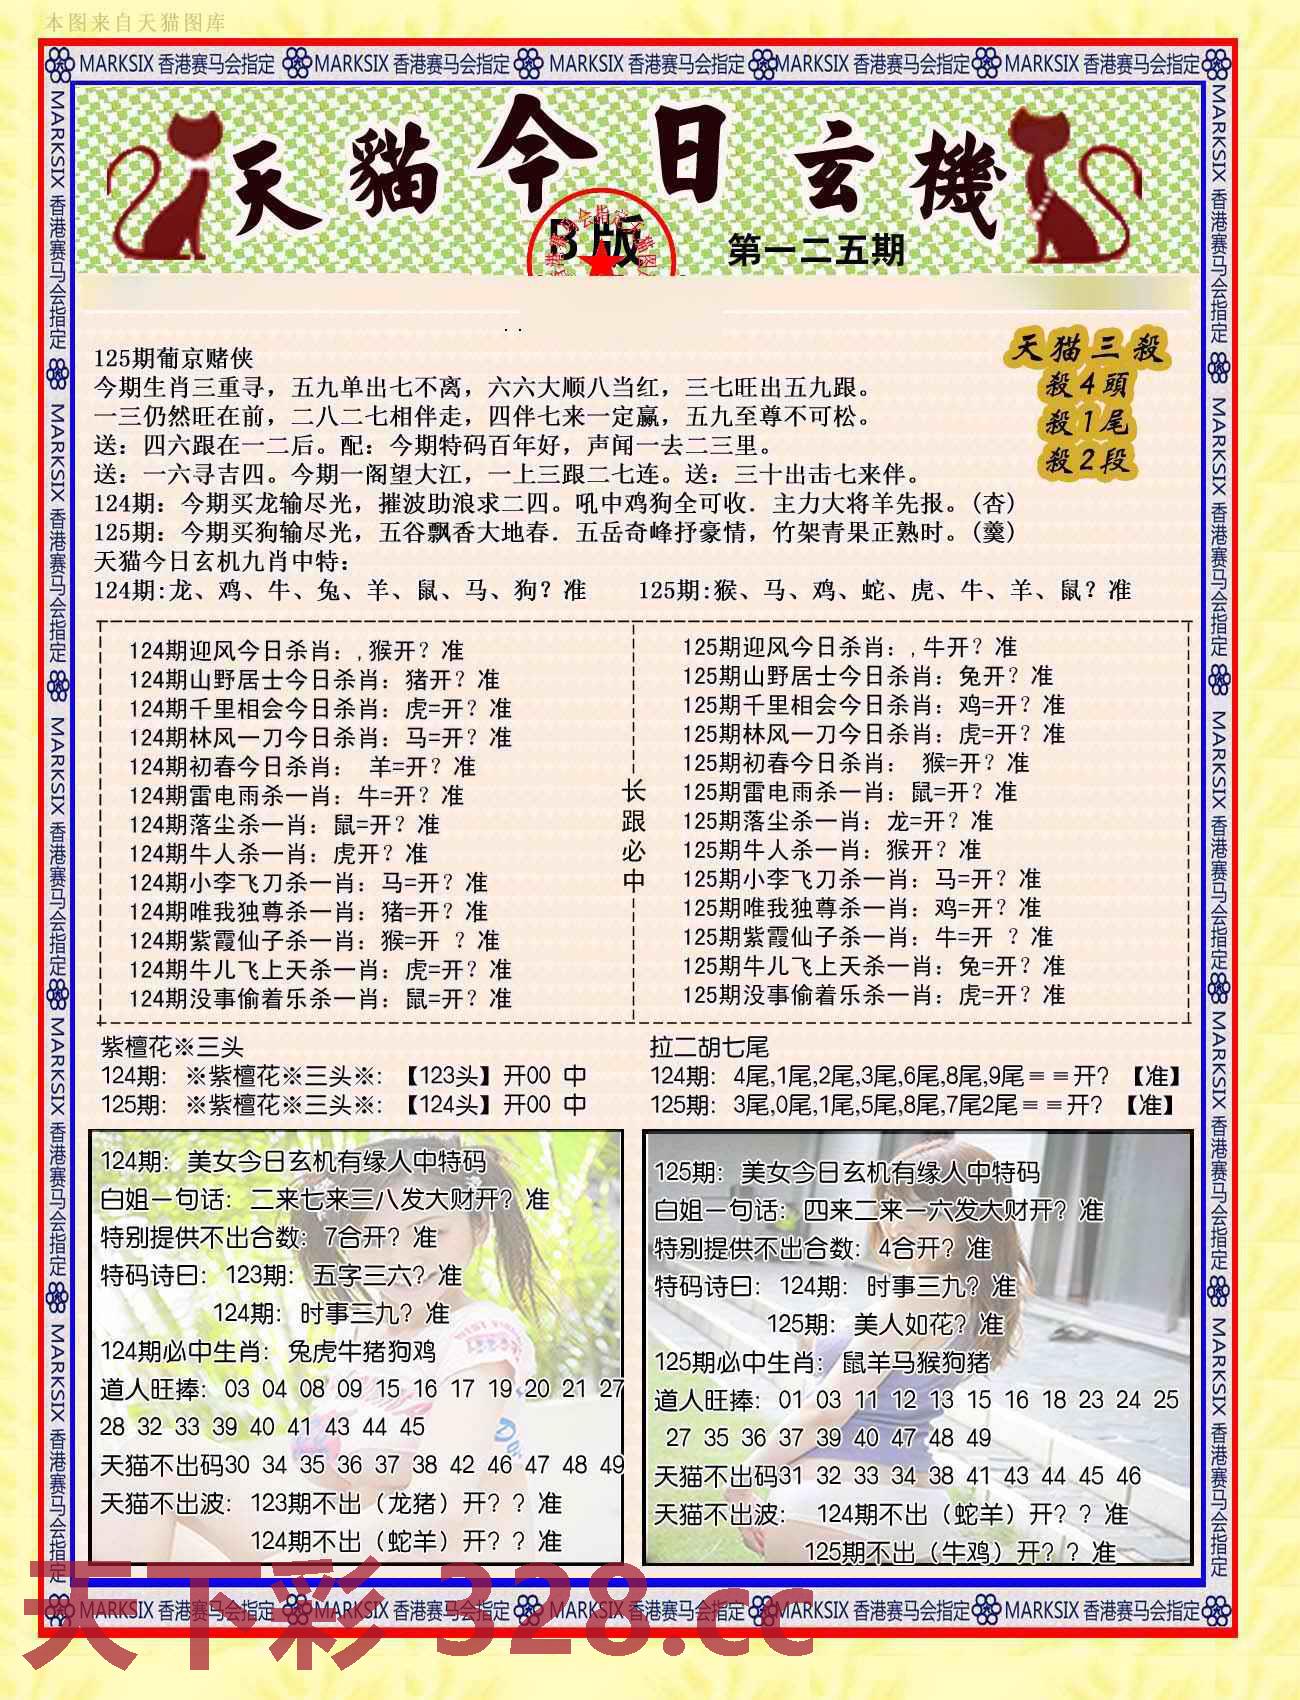 本图来自天猫图库
MARKSIX 香港赛马会指定 MARKSIX 香港赛马会指定 MARKSIX 香港赛马会指定 MARKSIX 香港赛马会指定 MARKSIX 香港赛马会指定
MARKSIX 香港赛马会指定 MARKSIX 香港赛马会指定 MARKSIX 香港赛马会指定 MARKSIX 香港赛马会指定 MARKSIX 香港赛马会指定
MARKSIX 香港赛马会指定 MARKSIX 香港赛马会指定 MARKSIX 香港赛马会指定 MARKSIX 香港赛马会指定 MARKSIX 香港赛马会指定
天貓今日玄機
B版
第一二五期
天猫三殺
殺4頭
殺1尾
殺2段
125期葡京赌侠
今期生肖三重寻，五九单出七不离，六六大顺八当红，三七旺出五九跟。
一三仍然旺在前，二八二七相伴走，四伴七来一定赢，五九至尊不可松。
送：四六跟在一二后。配：今期特码百年好，声闻一去二三里。
送：一六寻吉四。今期一阁望大江，一上三跟二七连。送：三十出击七来伴。
124期：今期买龙输尽光，摧波助浪求二四。吼中鸡狗全可收．主力大将羊先报。(杏)
125期：今期买狗输尽光，五谷飘香大地春．五岳奇峰抒豪情，竹架青果正熟时。(羹)
天猫今日玄机九肖中特：
124期:龙、鸡、牛、兔、羊、鼠、马、狗？准 125期:猴、马、鸡、蛇、虎、牛、羊、鼠？准
124期迎风今日杀肖：,猴开？准
124期山野居士今日杀肖：猪开？准
124期千里相会今日杀肖：虎=开？准
124期林风一刀今日杀肖：马=开？准
124期初春今日杀肖： 羊=开？准
124期雷电雨杀一肖：牛=开？准
124期落尘杀一肖：鼠=开？准
124期牛人杀一肖：虎开？准
124期小李飞刀杀一肖：马=开？准
124期唯我独尊杀一肖：猪=开？准
124期紫霞仙子杀一肖：猴=开 ？准
124期牛儿飞上天杀一肖：虎=开？准
124期没事偷着乐杀一肖：鼠=开？准
长
跟
必
中
125期迎风今日杀肖：,牛开？准
125期山野居士今日杀肖：兔开？准
125期千里相会今日杀肖：鸡=开？准
125期林风一刀今日杀肖：虎=开？准
125期初春今日杀肖： 猴=开？准
125期雷电雨杀一肖：鼠=开？准
125期落尘杀一肖：龙=开？准
125期牛人杀一肖：猴开？准
125期小李飞刀杀一肖：马=开？准
125期唯我独尊杀一肖：鸡=开？准
125期紫霞仙子杀一肖：牛=开 ？准
125期牛儿飞上天杀一肖：兔=开？准
125期没事偷着乐杀一肖：虎=开？准
紫檀花※三头
124期：※紫檀花※三头※：【123头】开00 中
125期：※紫檀花※三头※：【124头】开00 中
拉二胡七尾
124期：4尾,1尾,2尾,3尾,6尾,8尾,9尾＝＝开？【准】
125期：3尾,0尾,1尾,5尾,8尾,7尾2尾＝＝开？【准】
124期：美女今日玄机有缘人中特码
白姐一句话：二来七来三八发大财开？准
特别提供不出合数：7合开？准
特码诗曰：123期：五字三六？准
124期：时事三九？准
124期必中生肖：兔虎牛猪狗鸡
道人旺捧：03 04 08 09 15 16 17 19 20 21 27
28 32 33 39 40 41 43 44 45
天猫不出码30 34 35 36 37 38 42 46 47 48 49
天猫不出波：123期不出（龙猪）开？？准
124期不出（蛇羊）开？？准
125期：美女今日玄机有缘人中特码
白姐一句话：四来二来一六发大财开？准
特别提供不出合数：4合开？准
特码诗曰：124期：时事三九？准
125期：美人如花？准
125期必中生肖：鼠羊马猴狗猪
道人旺捧：01 03 11 12 13 15 16 18 23 24 25
27 35 36 37 39 40 47 48 49
天猫不出码31 32 33 34 38 41 43 44 45 46
天猫不出波： 124期不出（蛇羊）开？？准
125期不出（牛鸡）开？？准
MARKSIX 香港赛马会指定 MARKSIX 香港赛马会指定 MARKSIX 香港赛马会指定 MARKSIX 香港赛马会指定 MARKSIX 香港赛马会指定
天下彩 328.cc